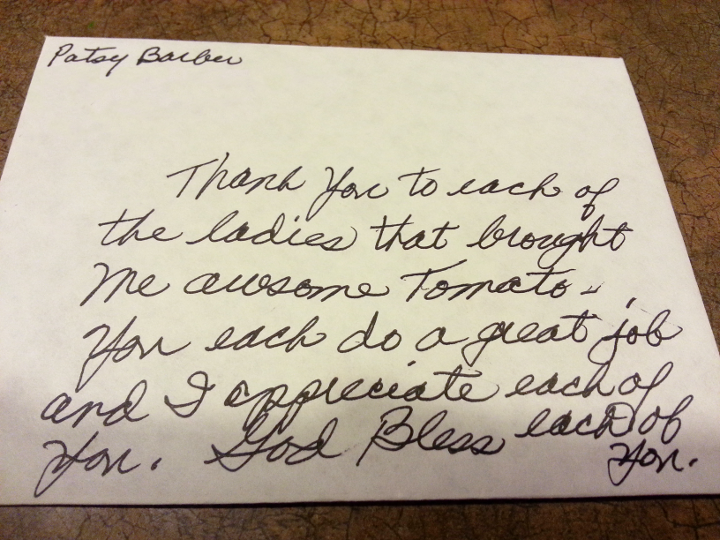 Patsy Barber
Thank You to each of
the ladies that brought
Me awsome Tomato -
You each do a great job
and I appreciate each of
You. God Bless each of
You.